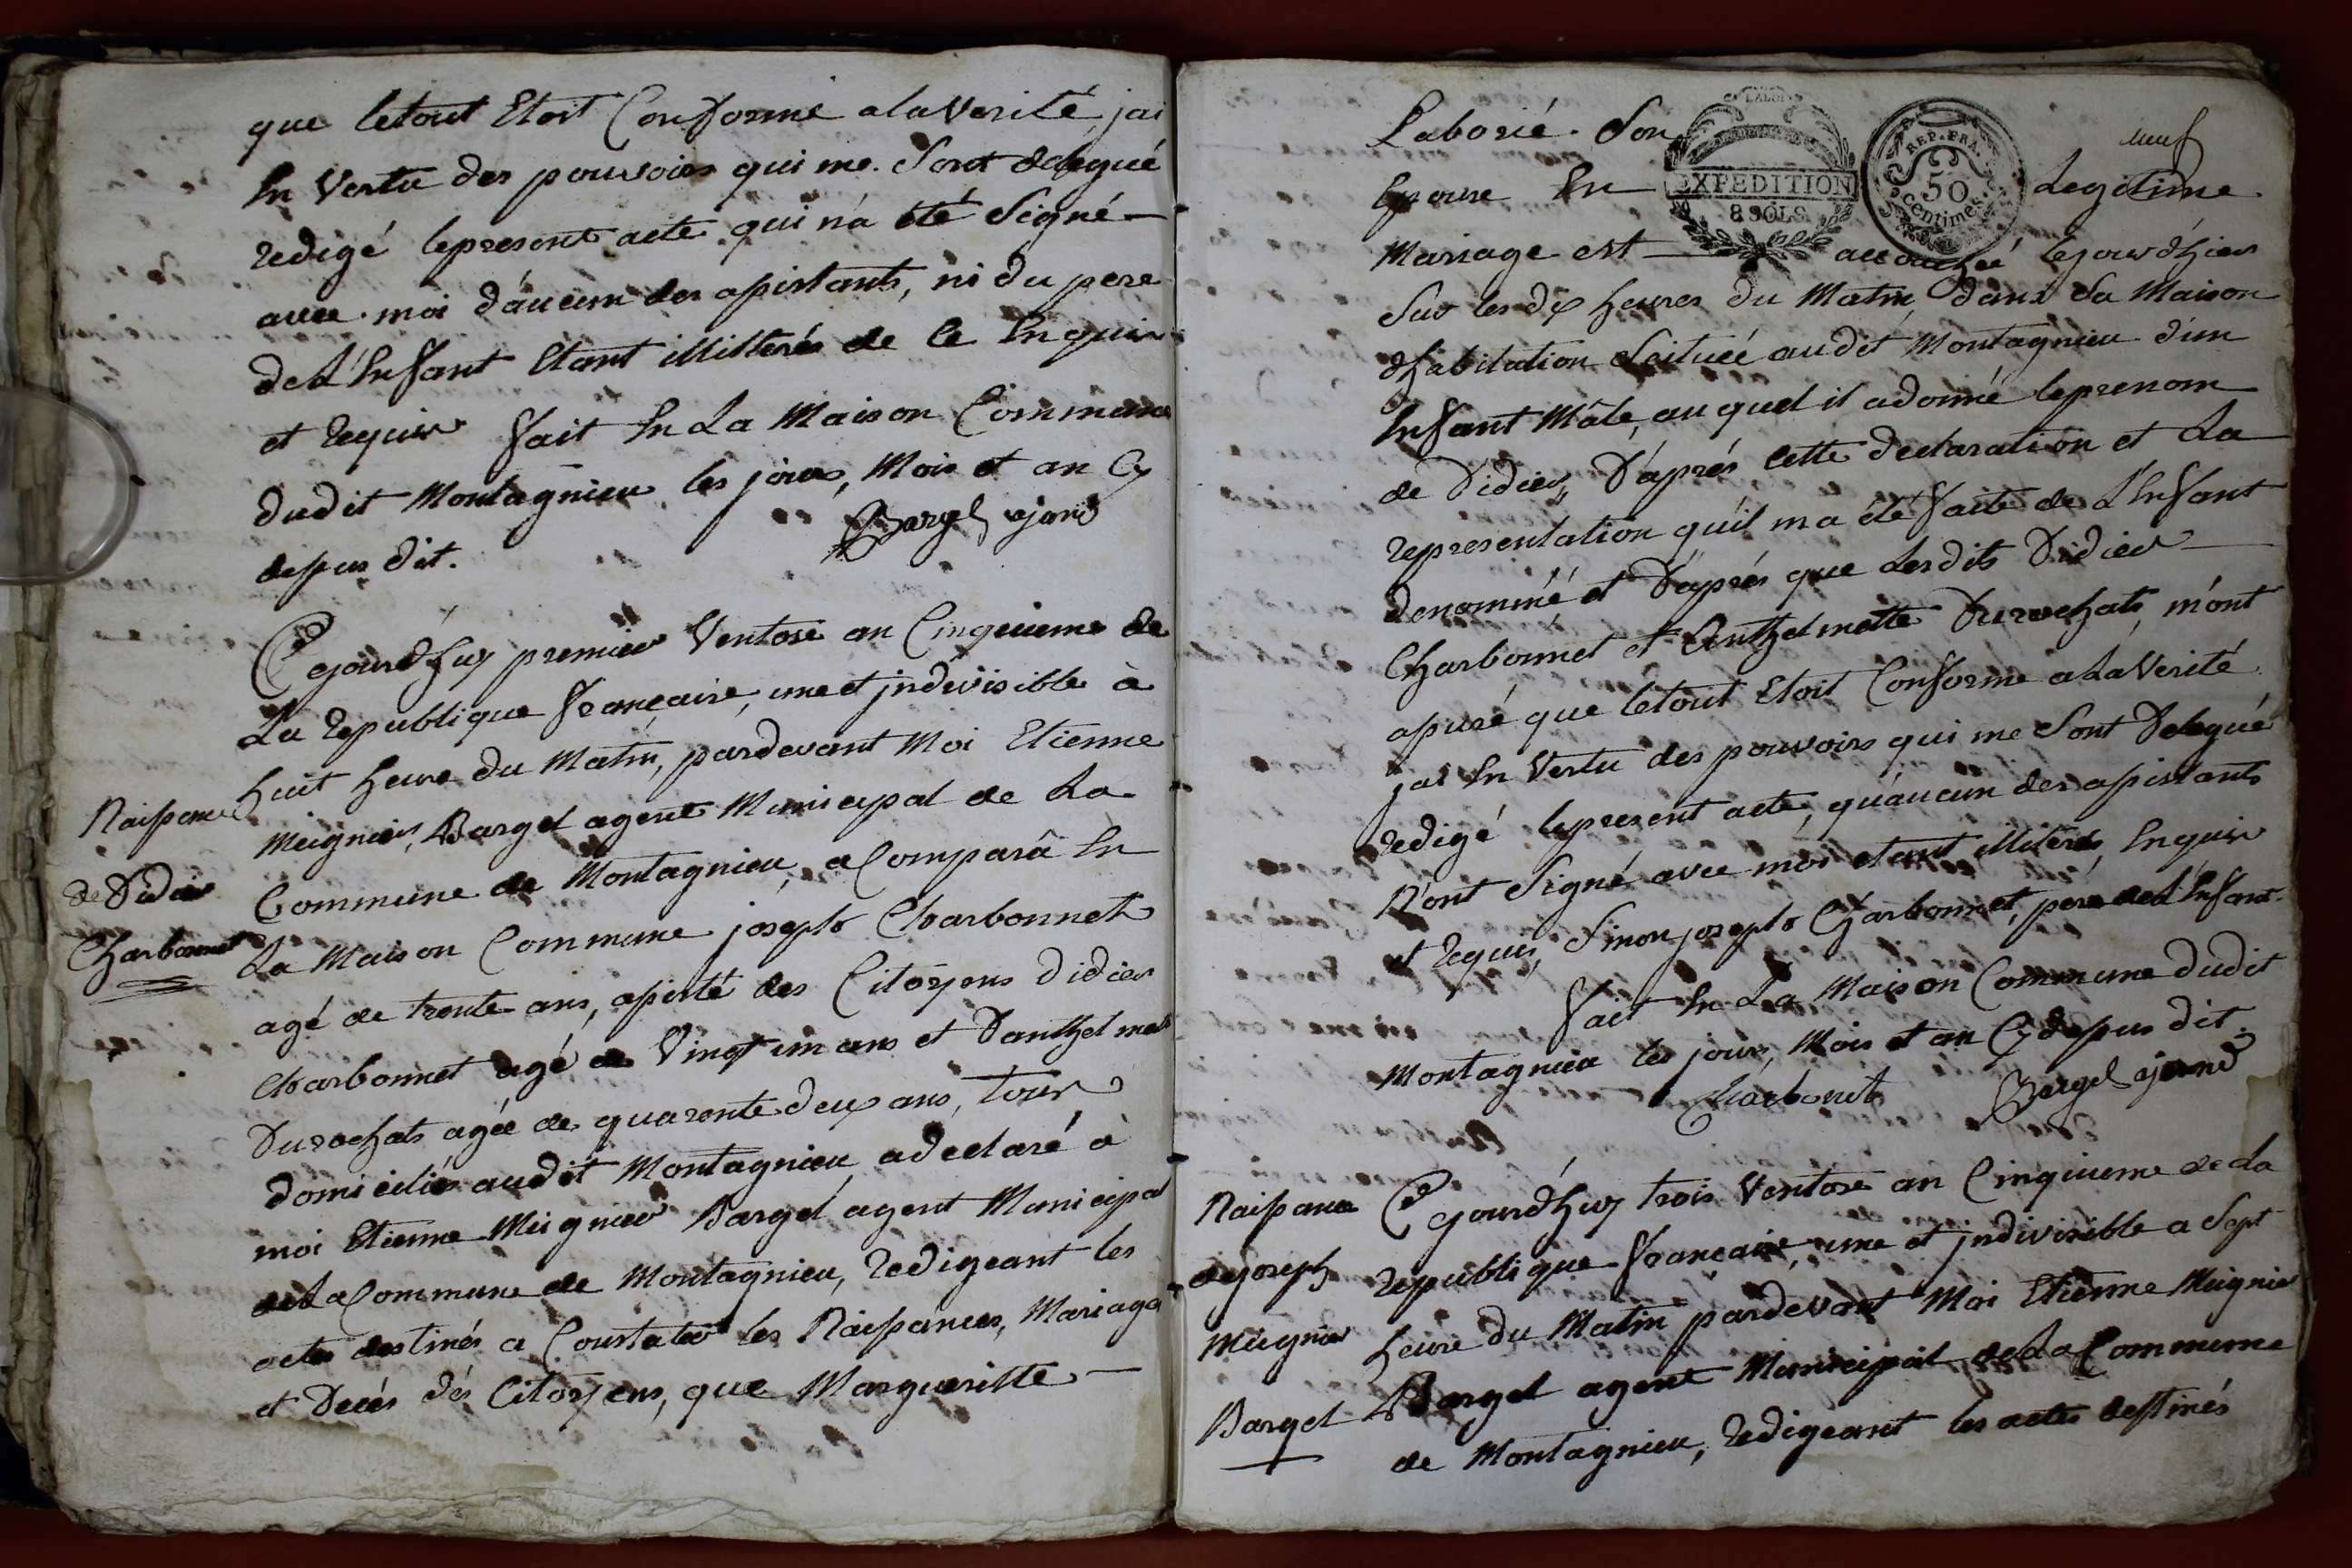 que letout Etoit Conforme alaverité, jai
En Vertu des pouvoirs qui me Sont delegué
redigé lepresent acte qui n'a été Signé
avec moi d'aucun des assistants, ni du pere
de L'Enfant Etant illitterés de ce Enquis
et requis fait En La Maison Commune
dudit Montagnieu les jour, Mois et an Cy
dessus dit. Bargel agent
Naissance
de Didier
Charbonnet
Cejourd'huy premier Ventose an Cinquieme de
La republique française, une et jndivisible à
huit heure du Matin, pardevant Moi Etienne
Meignier, Bargel agent Municipal de La
Commune de Montagnieu, a Comparû En
La Maison Commune joseph Charbonnet
agé de trente ans, assisté des Citoyens Didier
Charbonnet agé de Vingt un ans et D'anthelmette
Durochats agée de quarente deux ans, tous
domiciliés audit Montagnieu, adeclaré à
moi Etienne Meignier Bargel agent Municipal
deLa Commune de Montagnieu, redigeant les
actes destinés a Constater les Naissances, Mariages
et Decés dés Citoyens, que Margueritte
neuf
EXPEDITION
8 SOLS
REP. FRA.
50
centimes
Laborié Son
Epouse En Legitime
Mariage est accouchée lejourd'hier
Sur les dix heures du Matin, dans Sa Maison
d'habitation Scituée audit Montagnieu d'un
Enfant Mâle, auquel il adonné leprenom
de Didier, D'aprés cette declaration et La
representation qu'il m'a été faite de L'Enfant
denommé, et D'aprés que Lesdits Didier
Charbonnet et Anthelmette Durochats, m'ont
assuré que letout Etoit Conforme aLaVerité
jai En Vertu des pouvoirs qui me Sont Delegué
redigé lepresent acte, qu'aucun des assistants
N'ont Signé avec moi etant illiterés, Enquis
et requis, Sinon joseph Charbonnet, pere deL'Enfant.
fait En La Maison Commune dudit
Montagnieu les jour, Mois et an Cydessus dit.
Charbonet Bargel agent
Naissance
de joseph
Meignier
Bargel
Cejourd'huy trois Ventose an Cinquieme de La
republique française, une et jndivisible a Sept
heure du Matin pardevant Moi Etienne Meignier
Bargel agent Municipal de La Commune
de Montagnieu, redigeant les actes destinés